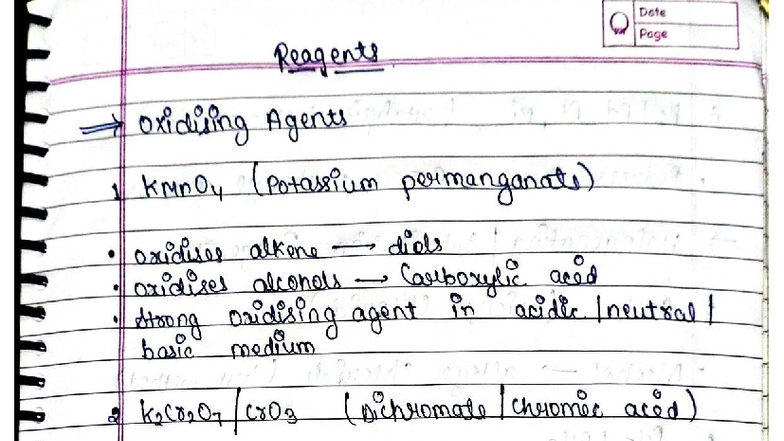 Date
Page
Reagents
⇒ Oxidising Agents
1 KMnO4 (Potassium permanganats)
• oxidises alkene → diols
• oxidises alcohols → Carboxylic acid
• strong oxidising agent in acidic / neutral /
basic medium
2 K2Cr2O7 / CrO3 (Dichromate / Chromic acid)